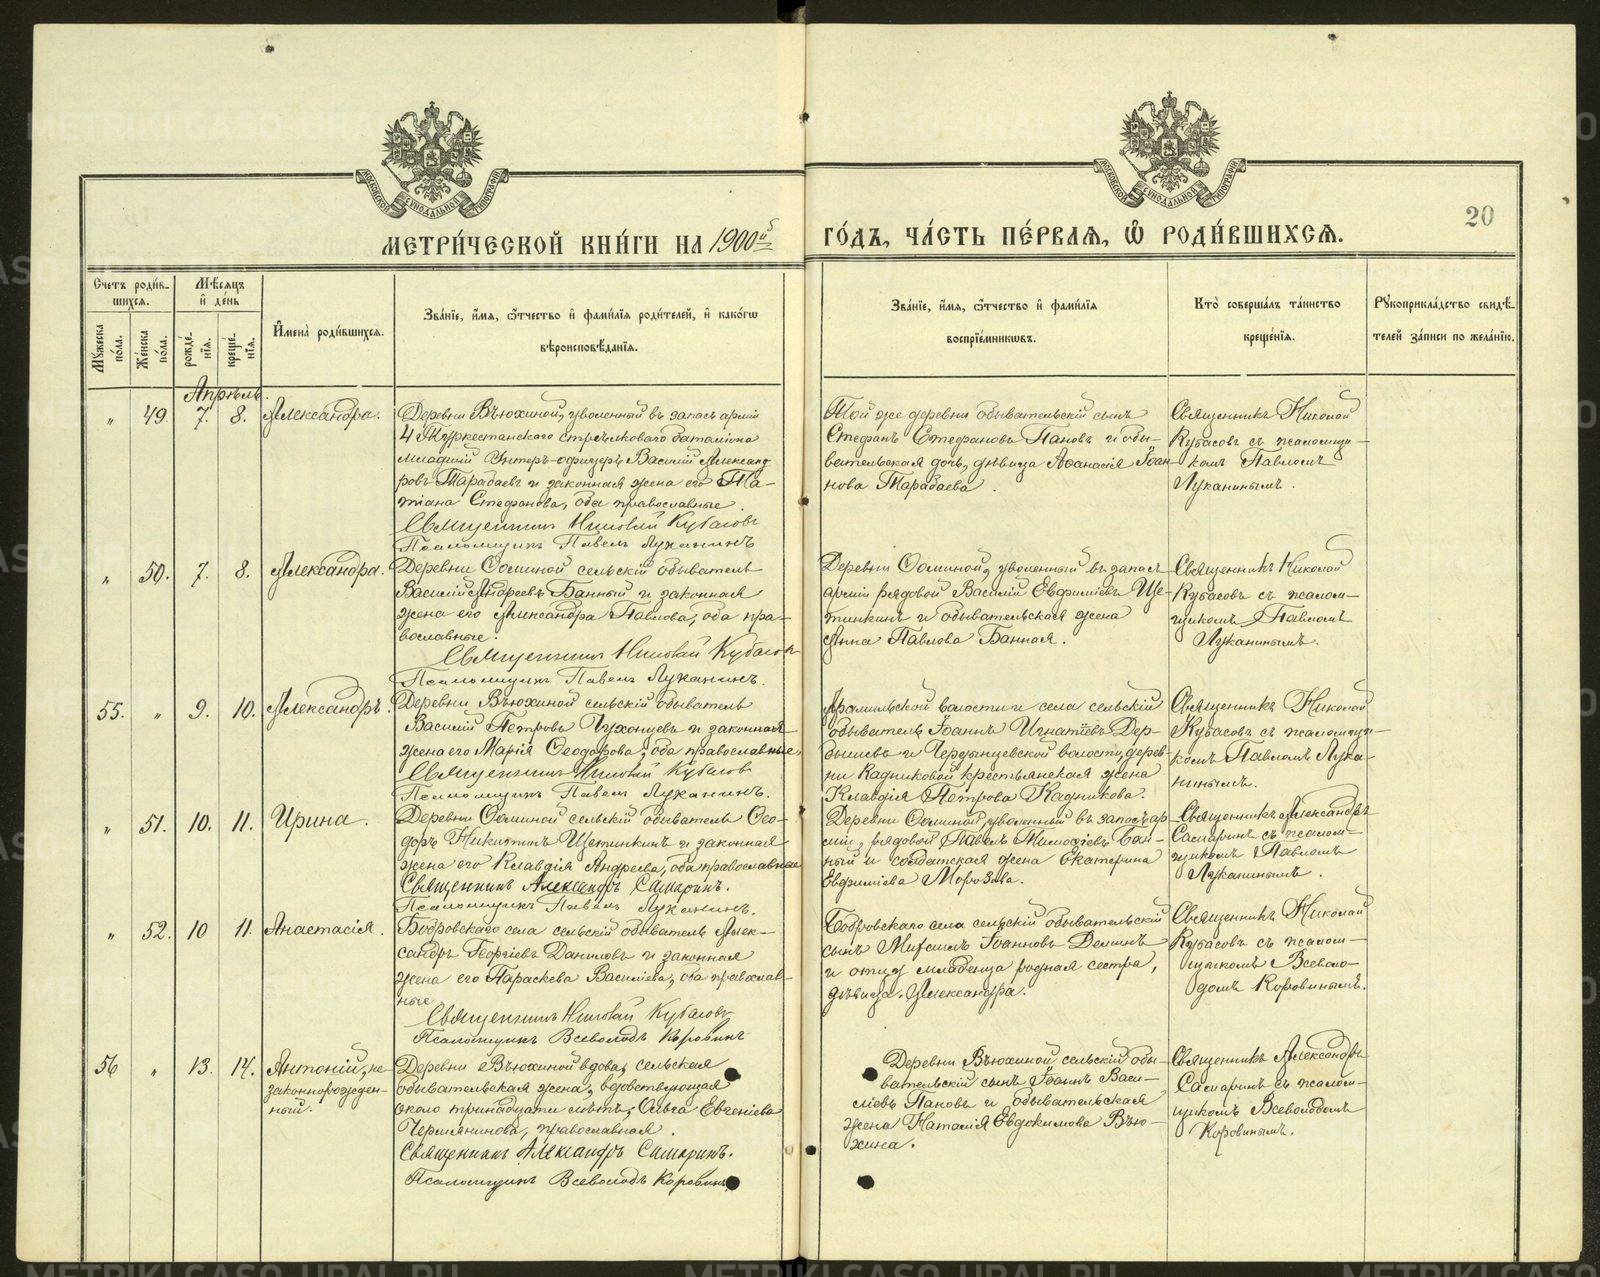 МОСКОВСКОЙ СѴНОДАЛЬНОЙ ТИПОГРАФІИ
МОСКОВСКОЙ СѴНОДАЛЬНОЙ ТИПОГРАФІИ
20
МЕТРИ́ЧЕСКОЙ КНИ́ГИ НА 1900й ГО́ДЪ, ЧА́СТЬ ПЕ́РВАЯ, Ѡ҆ РОДИ́ВШИХСЯ.
Счетъ роди́в-
шихся.
Мѣсяцъ
и҆ де́нь
Мꙋжеска по́ла.
Же́нска по́ла.
рожде́-
нїя.
креще́-
нїя.
И҆мена̀ роди́вшихся.
Зва́нїе, и҆́мя, ѻ҆́тчество и҆ фами́лїя роди́телей, и҆ како́гѡ
вѣроисповѣ́данїя.
Зва́нїе, и҆́мя, ѻ҆́тчество и҆ фами́лїя
воспрїе́мникѡвъ.
Кто̀ соверша́лъ та́инство
креще́нїя.
Рꙋкоприкла́дство свидѣ́-
телей за́писи по жела́нїю.
Апрѣль.
" 49. 7. 8. Александра.
Деревни Вьюхиной, уволенный въ запасъ арміи
4 Туркестанскаго стрѣлковаго баталіона
младшій Унтеръ-офицеръ Василій Александ
ровъ Тарабаевъ и законная жена его Та-
тіана Стефанова, оба православные.
Священникъ Николай Кубасовъ
Псаломщикъ Павелъ Луканинъ
Той же деревни обывательскій сынъ
Стефанъ Стефановъ Пановъ и обы-
вательская дочь, дѣвица Аѳанасія Іоан-
нова Тарабаева.
Священникъ Николай
Кубасовъ съ псаломщи-
комъ Павломъ
Луканинымъ.
" 50. 7. 8. Александра.
Деревни Ѳоминой сельскій обыватель
Василій Андреевъ Банный и законная
жена его Александра Павлова, оба пра-
вославные.
Священникъ Николай Кубасовъ
Псаломщикъ Павелъ Луканинъ.
Деревни Ѳоминой, уволенный въ запасъ
арміи рядовой Василій Евфиміевъ Ще-
тинкинъ и обывательская жена
Анна Павлова Банная.
Священникъ Николай
Кубасовъ съ псалом-
щикомъ Павломъ
Луканинымъ.
55. " 9. 10. Александръ.
Деревни Вьюхиной сельскій обыватель
Василій Петровъ Чухонцевъ и законная
жена его Марія Ѳеодорова, оба православные
Священникъ Николай Кубасовъ
Псаломщикъ Павелъ Луканинъ.
Арамильской волости и села сельскій
обыватель Іоаннъ Игнатіевъ Дер-
бышевъ и Чердынцевской волости, дерев-
ни Кадниковой крестьянская жена
Клавдія Петрова Кадникова.
Священникъ Николай
Кубасовъ съ псаломщи-
комъ Павломъ Лука-
нинымъ.
" 51. 10. 11. Ирина.
Деревни Ѳоминой сельскій обыватель Ѳео-
доръ Никитинъ Щетинкинъ и законная
жена его Клавдія Андреева, оба православные
Священникъ Александръ Самаринъ.
Псаломщикъ Павелъ Луканинъ.
Деревни Ѳоминой уволенный въ запасъ ар-
міи, рядовой Павелъ Тимоѳіевъ Бан-
ный и солдатская жена Екатерина
Евфиміева Морозова.
Священникъ Александръ
Самаринъ съ псалом-
щикомъ Павломъ
Луканинымъ.
" 52. 10 11. Анастасія.
Бобровскаго села сельскій обыватель Алек-
сандръ Георгіевъ Даниловъ и законная
жена его Параскева Василіева, оба православ-
ные
Священникъ Николай Кубасовъ
Псаломщикъ Всеволодъ Коровинъ
Бобровскаго села сельскій обывательскій
сынъ Михаилъ Іоанновъ Деминъ
и отцу младенца родная сестра,
дѣвица, Александра.
Священникъ Николай
Кубасовъ съ псалом-
щикомъ Всеволо-
домъ Коровинымъ.
56 " 13. 14. Антоній, не-
законнорожден-
ный.
Деревни Вьюхиной вдова, сельская
обывательская жена, вдовствующая
около тринадцати лѣтъ, Ольга Евгеніева
Чермянинова, православная.
Священникъ Александръ Самаринъ.
Псаломщикъ Всеволодъ Коровинъ
Деревни Вьюхиной сельскій обы-
вательскій сынъ Іоаннъ Васи-
ліевъ Пановъ и обывательская
жена Наталія Евдокимова Вью-
хина.
Священникъ Александръ
Самаринъ съ псалом-
щикомъ Всеволодомъ
Коровинымъ.
METRIKI.GASO-URAL.RU